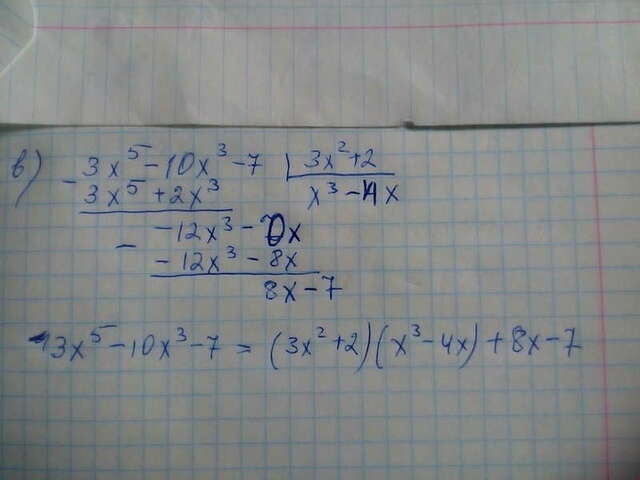 в) - 3x⁵ - 10x³ - 7 | 3x² + 2
3x⁵ + 2x³ x³ - 4x
- - 12x³ - 0x
- 12x³ - 8x
8x - 7
3x⁵ - 10x³ - 7 = (3x² + 2)(x³ - 4x) + 8x - 7